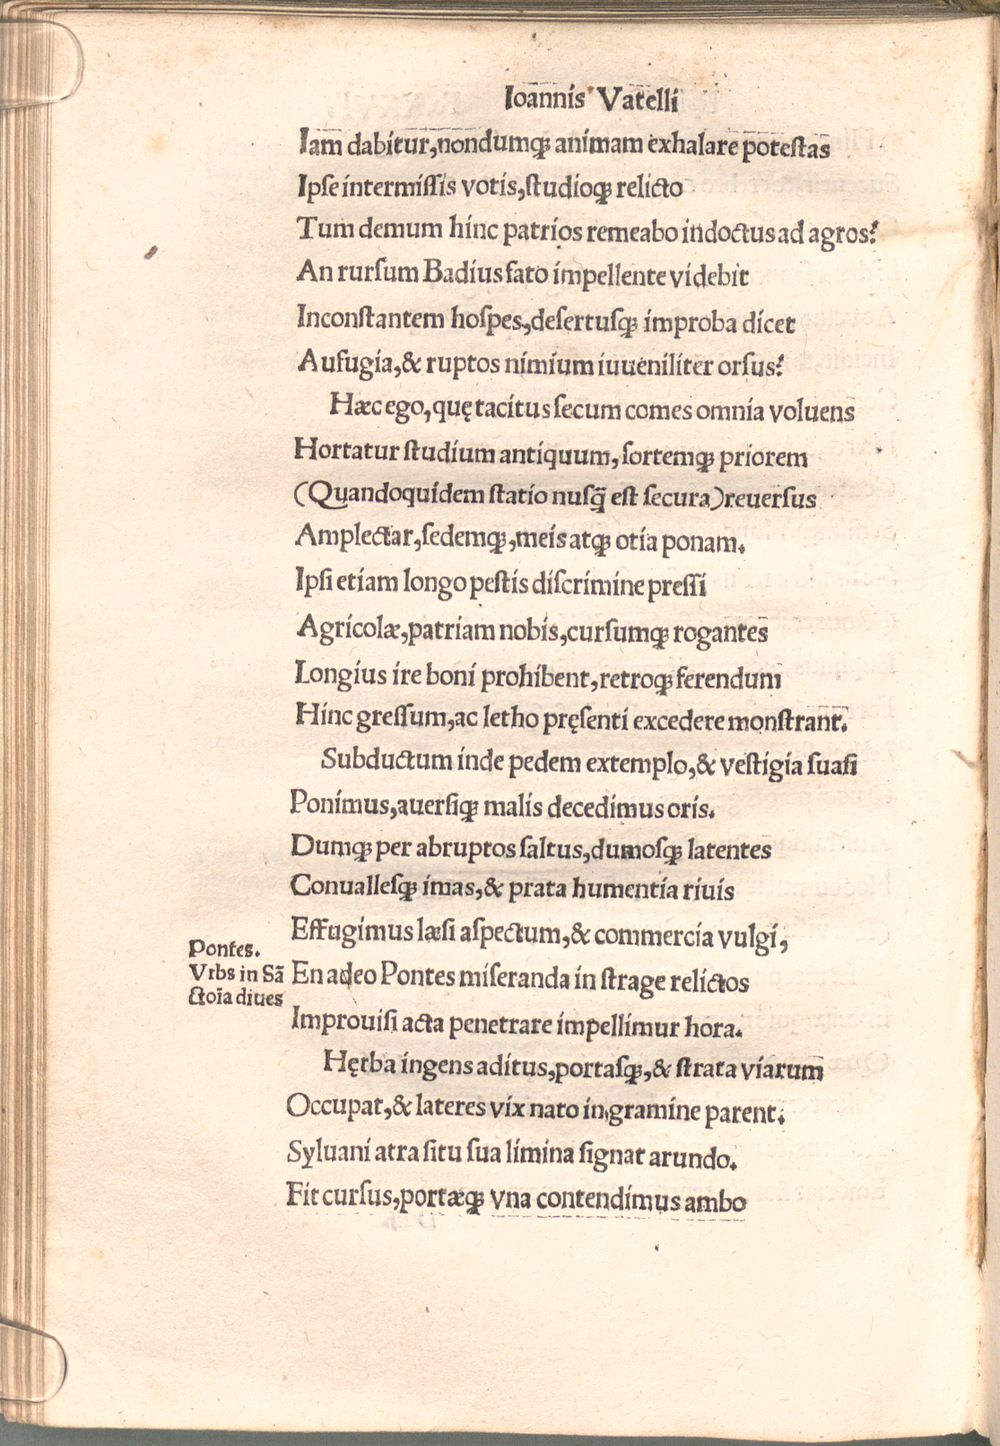 Ioannis Vatelli
Iam dabitur,nondumqꝫ animam exhalare poteſtas
Ipſe intermiſſis votis,ſtudioqꝫ relicto
Tum demum hinc patrios remeabo indoctus ad agros?
An rurſum Badius fato impellente videbit
Inconſtantem hoſpes,deſertuſqꝫ improba dicet
Aufugia,& ruptos nimium iuueniliter orſus?
Hæc ego,quę tacitus ſecum comes omnia voluens
Hortatur ſtudium antiquum,ſortemqꝫ priorem
(Quandoquidem ſtatio nuſq̃ eſt ſecura)reuerſus
Amplectar,ſedemqꝫ,meis atqꝫ otia ponam.
Ipſi etiam longo peſtis diſcrimine preſſi
Agricolæ,patriam nobis,curſumqꝫ rogantes
Longius ire boni prohibent,retroqꝫ ferendum
Hinc greſſum,ac letho pręſenti excedere monſtrant.
Subductum inde pedem extemplo,& veſtigia ſuaſi
Ponimus,auerſiqꝫ malis decedimus oris.
Dumqꝫ per abruptos ſaltus,dumoſqꝫ latentes
Conualleſqꝫ imas,& prata humentia riuis
Effugimus læſi aſpectum,& commercia vulgi,
Pontes.
Vrbs in Sā
ctoīa diues
En adeo Pontes miſeranda in ſtrage relictos
Improuiſi acta penetrare impellimur hora.
Hęrba ingens aditus,portaſqꝫ,& ſtrata viarum
Occupat,& lateres vix nato in gramine parent.
Syluani atra ſitu ſua limina ſignat arundo.
Fit curſus,portæqꝫ vna contendimus ambo